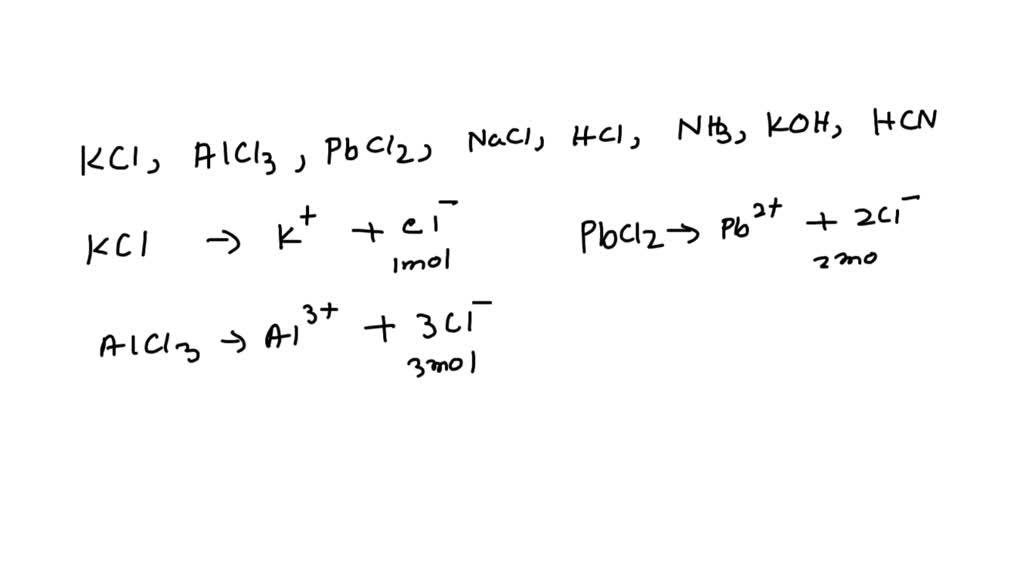 KCl, AlCl₃, PbCl₂, NaCl, HCl, NH₃, KOH, HCN
KCl → K⁺ + Cl⁻
1mol
PbCl₂ → Pb²⁺ + 2Cl⁻
2mo
AlCl₃ → Al³⁺ + 3Cl⁻
3mol